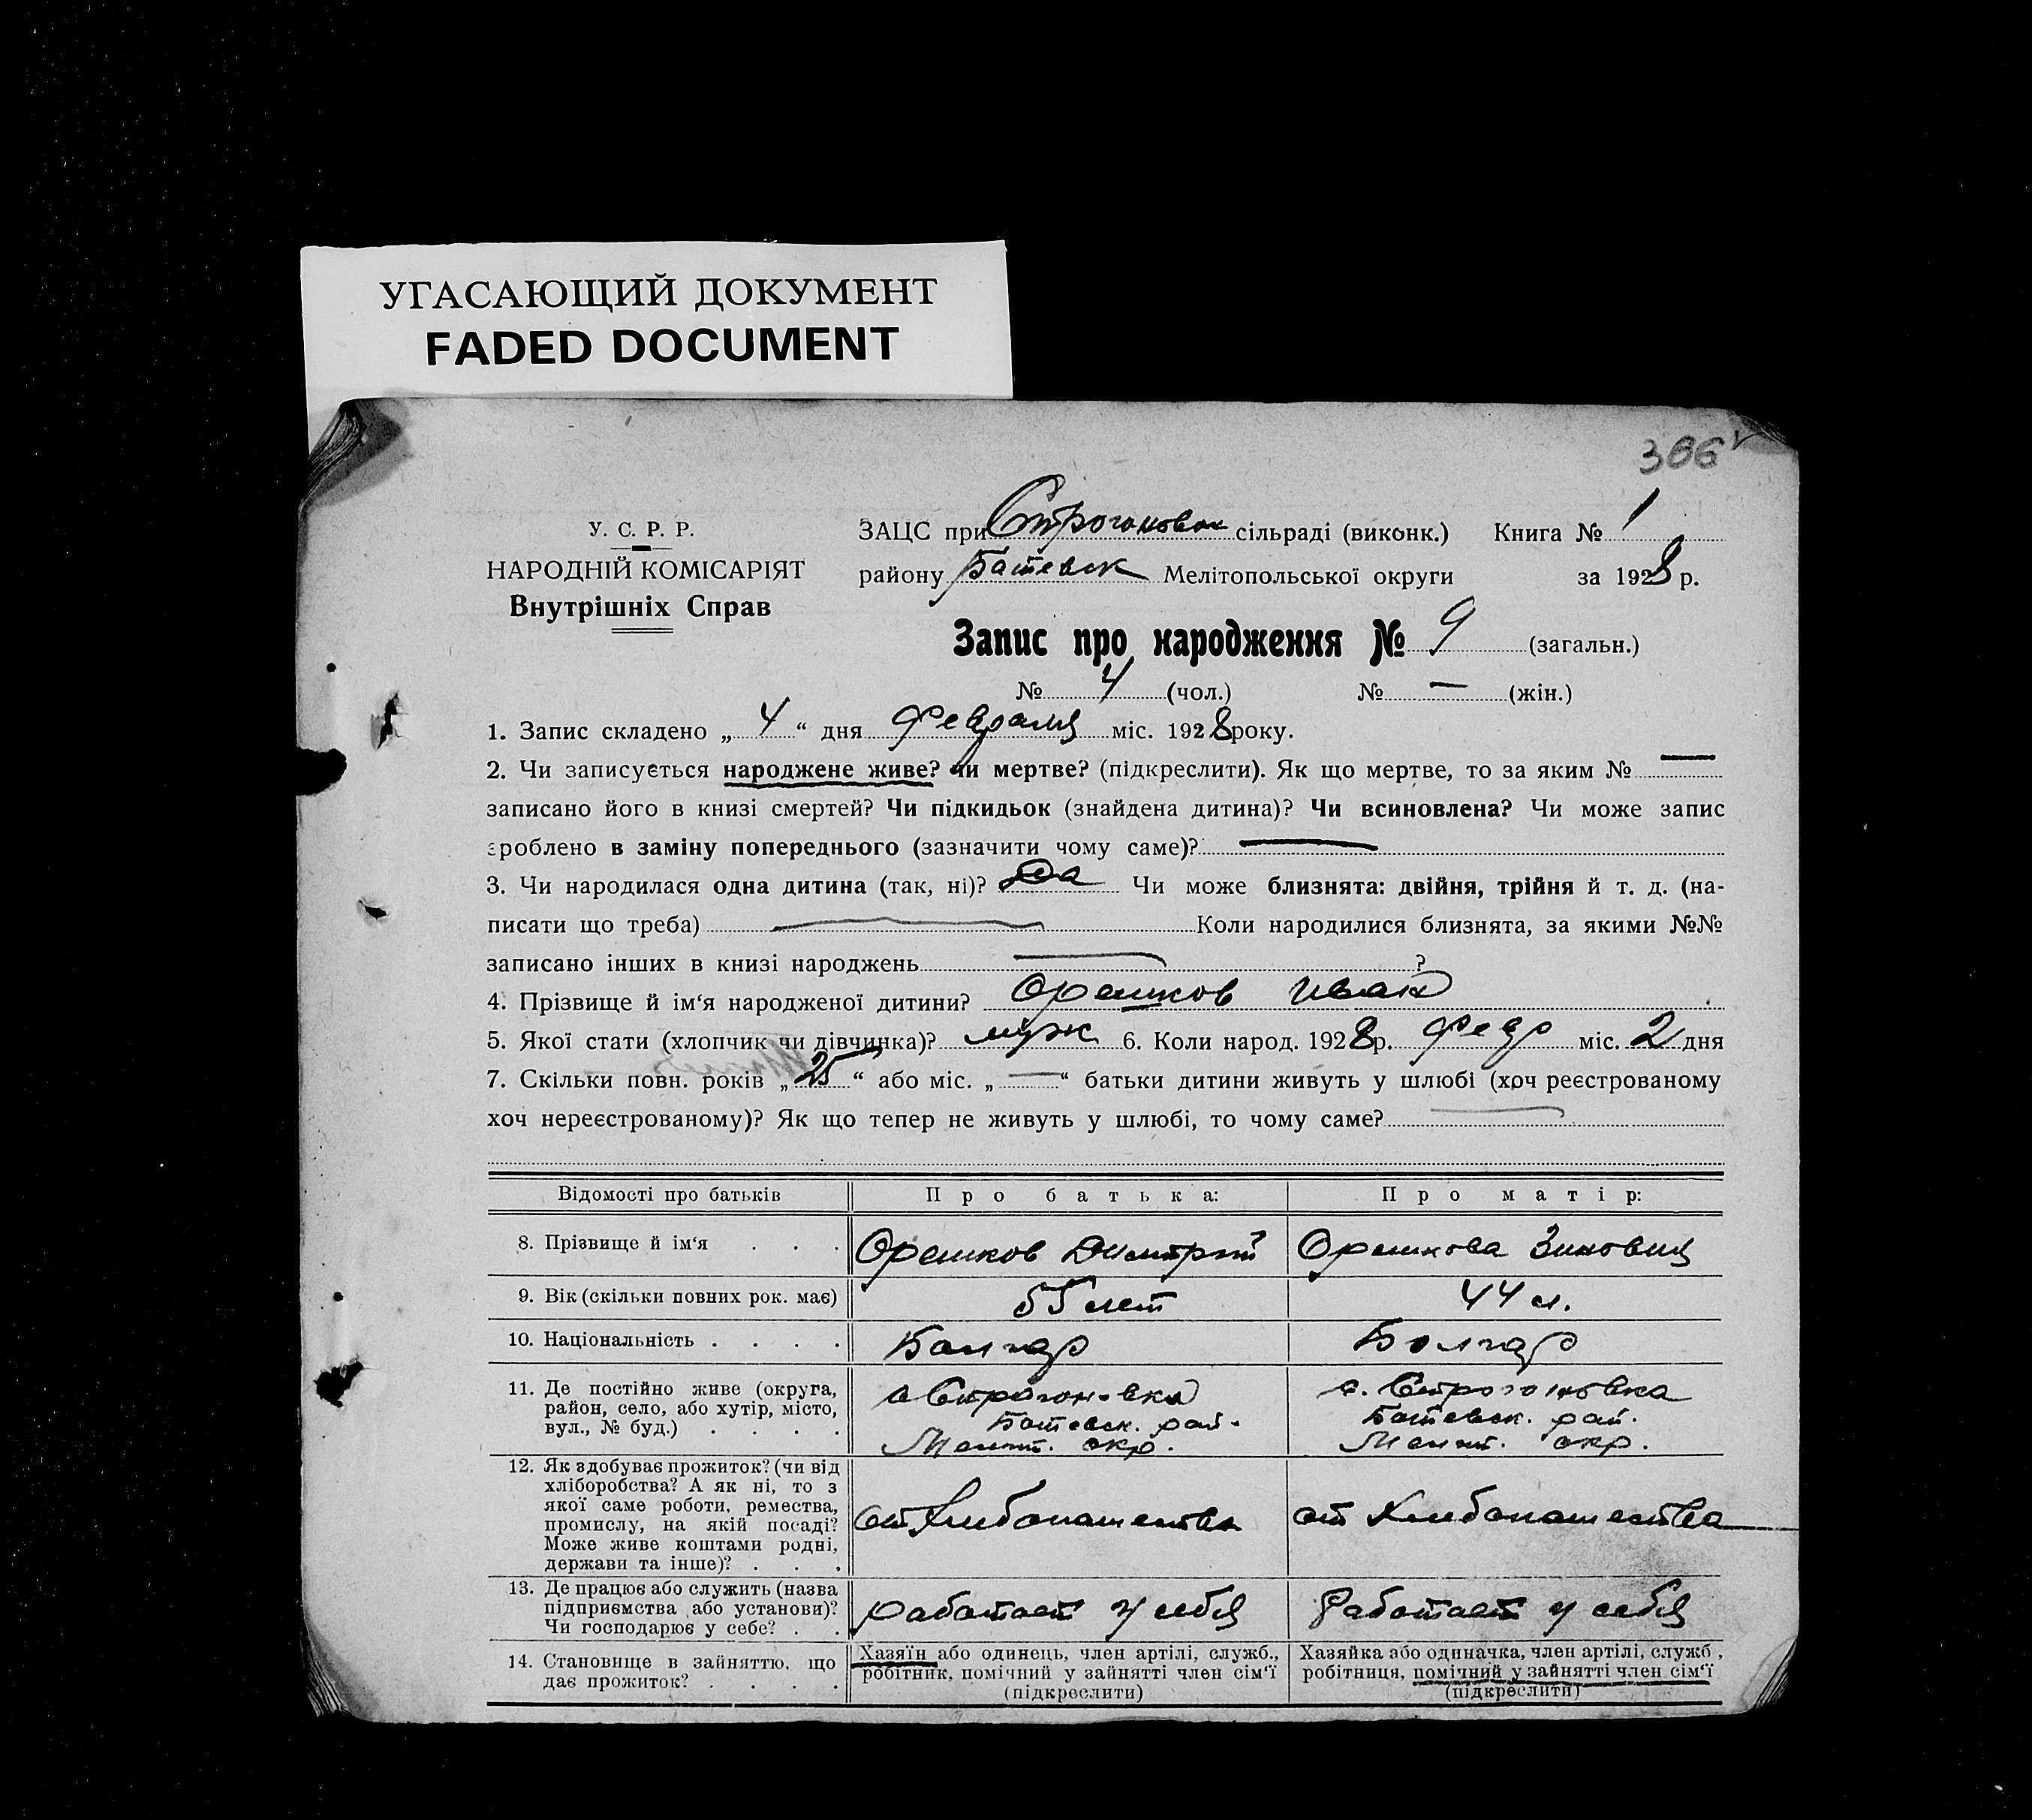 УГАСАЮЩИЙ ДОКУМЕНТ
FADED DOCUMENT
366
У. С. Р. Р.
НАРОДНІЙ КОМІСАРІЯТ
Внутрішніх Справ
ЗАЦС при Строгоновск сільраді (виконк.) Книга № 1
району Ботевск Мелітопольської округи за 1928 р.
Запис про народження № 9 (загальн.)
№ 4 (чол.) № — (жін.)
1. Запис складено „ 4 “ дня Февраля міс. 1928 року.
2. Чи записується народжене живе? чи мертве? (підкреслити). Як що мертве, то за яким № —
записано його в книзі смертей? Чи підкидьок (знайдена дитина)? Чи всиновлена? Чи може запис
зроблено в заміну попереднього (зазначити чому саме)? —
3. Чи народилася одна дитина (так, ні)? Да Чи може близнята: двійня, трійня й т. д. (на-
писати що треба) — Коли народилися близнята, за якими №№
записано інших в книзі народжень — ?
4. Прізвище й ім‘я народженої дитини? Орешков Иван
5. Якої стати (хлопчик чи дівчинка)? муж 6. Коли народ. 1928 р. Февр міс. 2 дня
7. Скільки повн. років „ 25 “ або міс. „ — “ батьки дитини живуть у шлюбі (хоч реєстрованому
хоч нереєстрованому)? Як що тепер не живуть у шлюбі, то чому саме? —
Відомості про батьків
Про батька:
Про матір:
8. Прізвище й ім‘я . . .
Орешков Димитрий
Орешкова Зиновия
9. Вік (скільки повних рок. має)
55 лет
44 л.
10. Національність . . . .
Болгар
Болгар
11. Де постійно живе (округа,
район, село, або хутір, місто,
вул., № буд.) . . . .
с Строгоновка
Ботевск. рай.
Мелит. окр.
с. Строгоновка
Ботевск. рай.
Мелит. окр.
12. Як здобуває прожиток? (чи від
хліборобства? А як ні, то з
якої саме роботи, ремества,
промислу, на якій посаді?
Може живе коштами родні,
держави та інше)? . . .
от Хлебопашества
от Хлебопашества
13. Де працює або служить (назва
підприємства або установи)?
Чи господарює у себе? . .
работает у себя
Работает у себя
14. Становище в зайняттю, що
дає прожиток? . . . .
Хазяїн або одинець, член артілі, служб.,
робітник, помічний у зайнятті член сім‘ї
(підкреслити)
Хазяйка або одиначка, член артілі, служб,
робітниця, помічний у зайнятті член сім‘ї
(підкреслити)